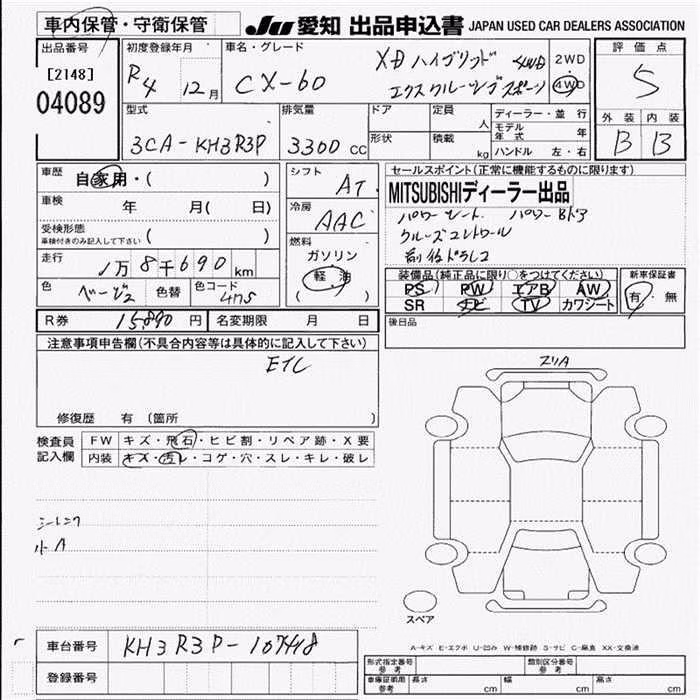 車内保管・守衛保管
JU 愛知 出品申込書 JAPAN USED CAR DEALERS ASSOCIATION
出品番号
[2148]
04089
初度登録年月
R4 12月
車名・グレード
CX-60
XD ハイブリッド 4WD
エクスクルーシブスポーツ
2WD
4WD
評価点
5
外装 内装
B B
型式
3CA-KH3R3P
排気量
3300 CC
ドア
形状
定員
人
積載
kg
ディーラー・並 行
モデル年式 年
ハンドル 左・右
車歴
自家用・( )
車検 年 月( 日)
受検形態
車検付きのみ記入して下さい ( )
走行
1万8千690km
色
ベージュ
色替
色コード
47S
シフト
AT
冷房
AAC
燃料
ガソリン
軽 油
( )
セールスポイント(正常に機能するものに限ります)
MITSUBISHIディーラー出品
パワーシート パワーBドア
クルーズコントロール
前後ドラレコ
装備品(純正品に限り○をつけてください)
PS PW エアB AW
SR ナビ TV カワシート
新車保証書
有・無
後日品
R券 15,890円 名変期限 月 日
注意事項申告欄(不具合内容等は具体的に記入して下さい)
ETC
修復歴 有 (箇所 )
検査員
記入欄
FW キズ・飛石・ヒビ割・リペア跡・X要
内装 キズ・汚レ・コゲ・穴・スレ・キレ・破レ
小A
スリA
スペア
車台番号 KH3R3P-107448
登録番号
A-キズ E-エクボ U-凹み W-補修跡 S-サビ C-腐食 XX-交換済
形式指定番号
参考
類別区分番号
参考
車庫証明用
参考
長さ cm 幅 cm 高さ cm